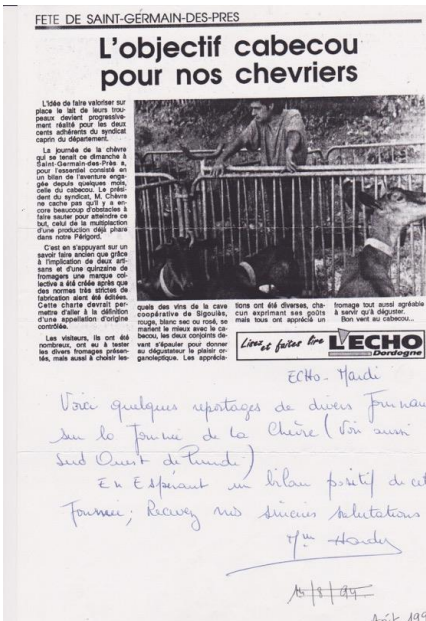 FETE DE SAINT-GERMAIN-DES-PRES
L'objectif cabecou
pour nos chevriers
L'idée de faire valoriser sur
place le lait de leurs trou-
peaux devient progressive-
ment réalité pour les deux
cents adhérents du syndicat
caprin du département.
La journée de la chèvre
qui se tenait ce dimanche à
Saint-Germain-des-Prés a,
pour l'essentiel consisté en
un bilan de l'aventure enga-
gée depuis quelques mois,
celle du cabecou. Le prési-
dent du syndicat, M. Chèvre
ne cache pas qu'il y a en-
core beaucoup d'obstacles à
faire sauter pour atteindre ce
but, celui de la multiplaction
d'une production déjà phare
dans notre Périgord.
C'est en s'appuyant sur un
savoir faire ancien que grâce
à l'implication de deux arti-
sans et d'une quinzaine de
fromagers une marque col-
lective a été créée après que
des normes très strictes de
fabrication aient été éditées.
Cette charte devrait per-
mettre d'aller à la définition
d'une appellation d'origine
contrôlée.
Les visiteurs, ils ont été
nombreux, ont eu à tester
les divers fromages présen-
tés, mais aussi à choisir les-
quels des vins de la cave
coopérative de Sigoulès,
rouge, blanc sec ou rosé, se
marient le mieux avec le ca-
becou, les deux conjoints de-
vant s'épauler pour donner
au dégustateur le plaisir or-
ganoleptique. Les apprécia-
tions ont été diverses, cha-
cun exprimant ses goûts
mais tous ont apprécié un
fromage tout aussi agréable
à servir qu'à déguster.
Bon vent au cabecou...
Lisez et faites lire
L'ECHO
Dordogne
ECHO - Mardi
Voici quelques reportages de divers Journaux
sur la Journée de la Chèvre (Voir aussi
Sud Ouest de Lundi)
En Espérant un bilan positif de cet
Journée; Recevez nos sincères salutations
Mme